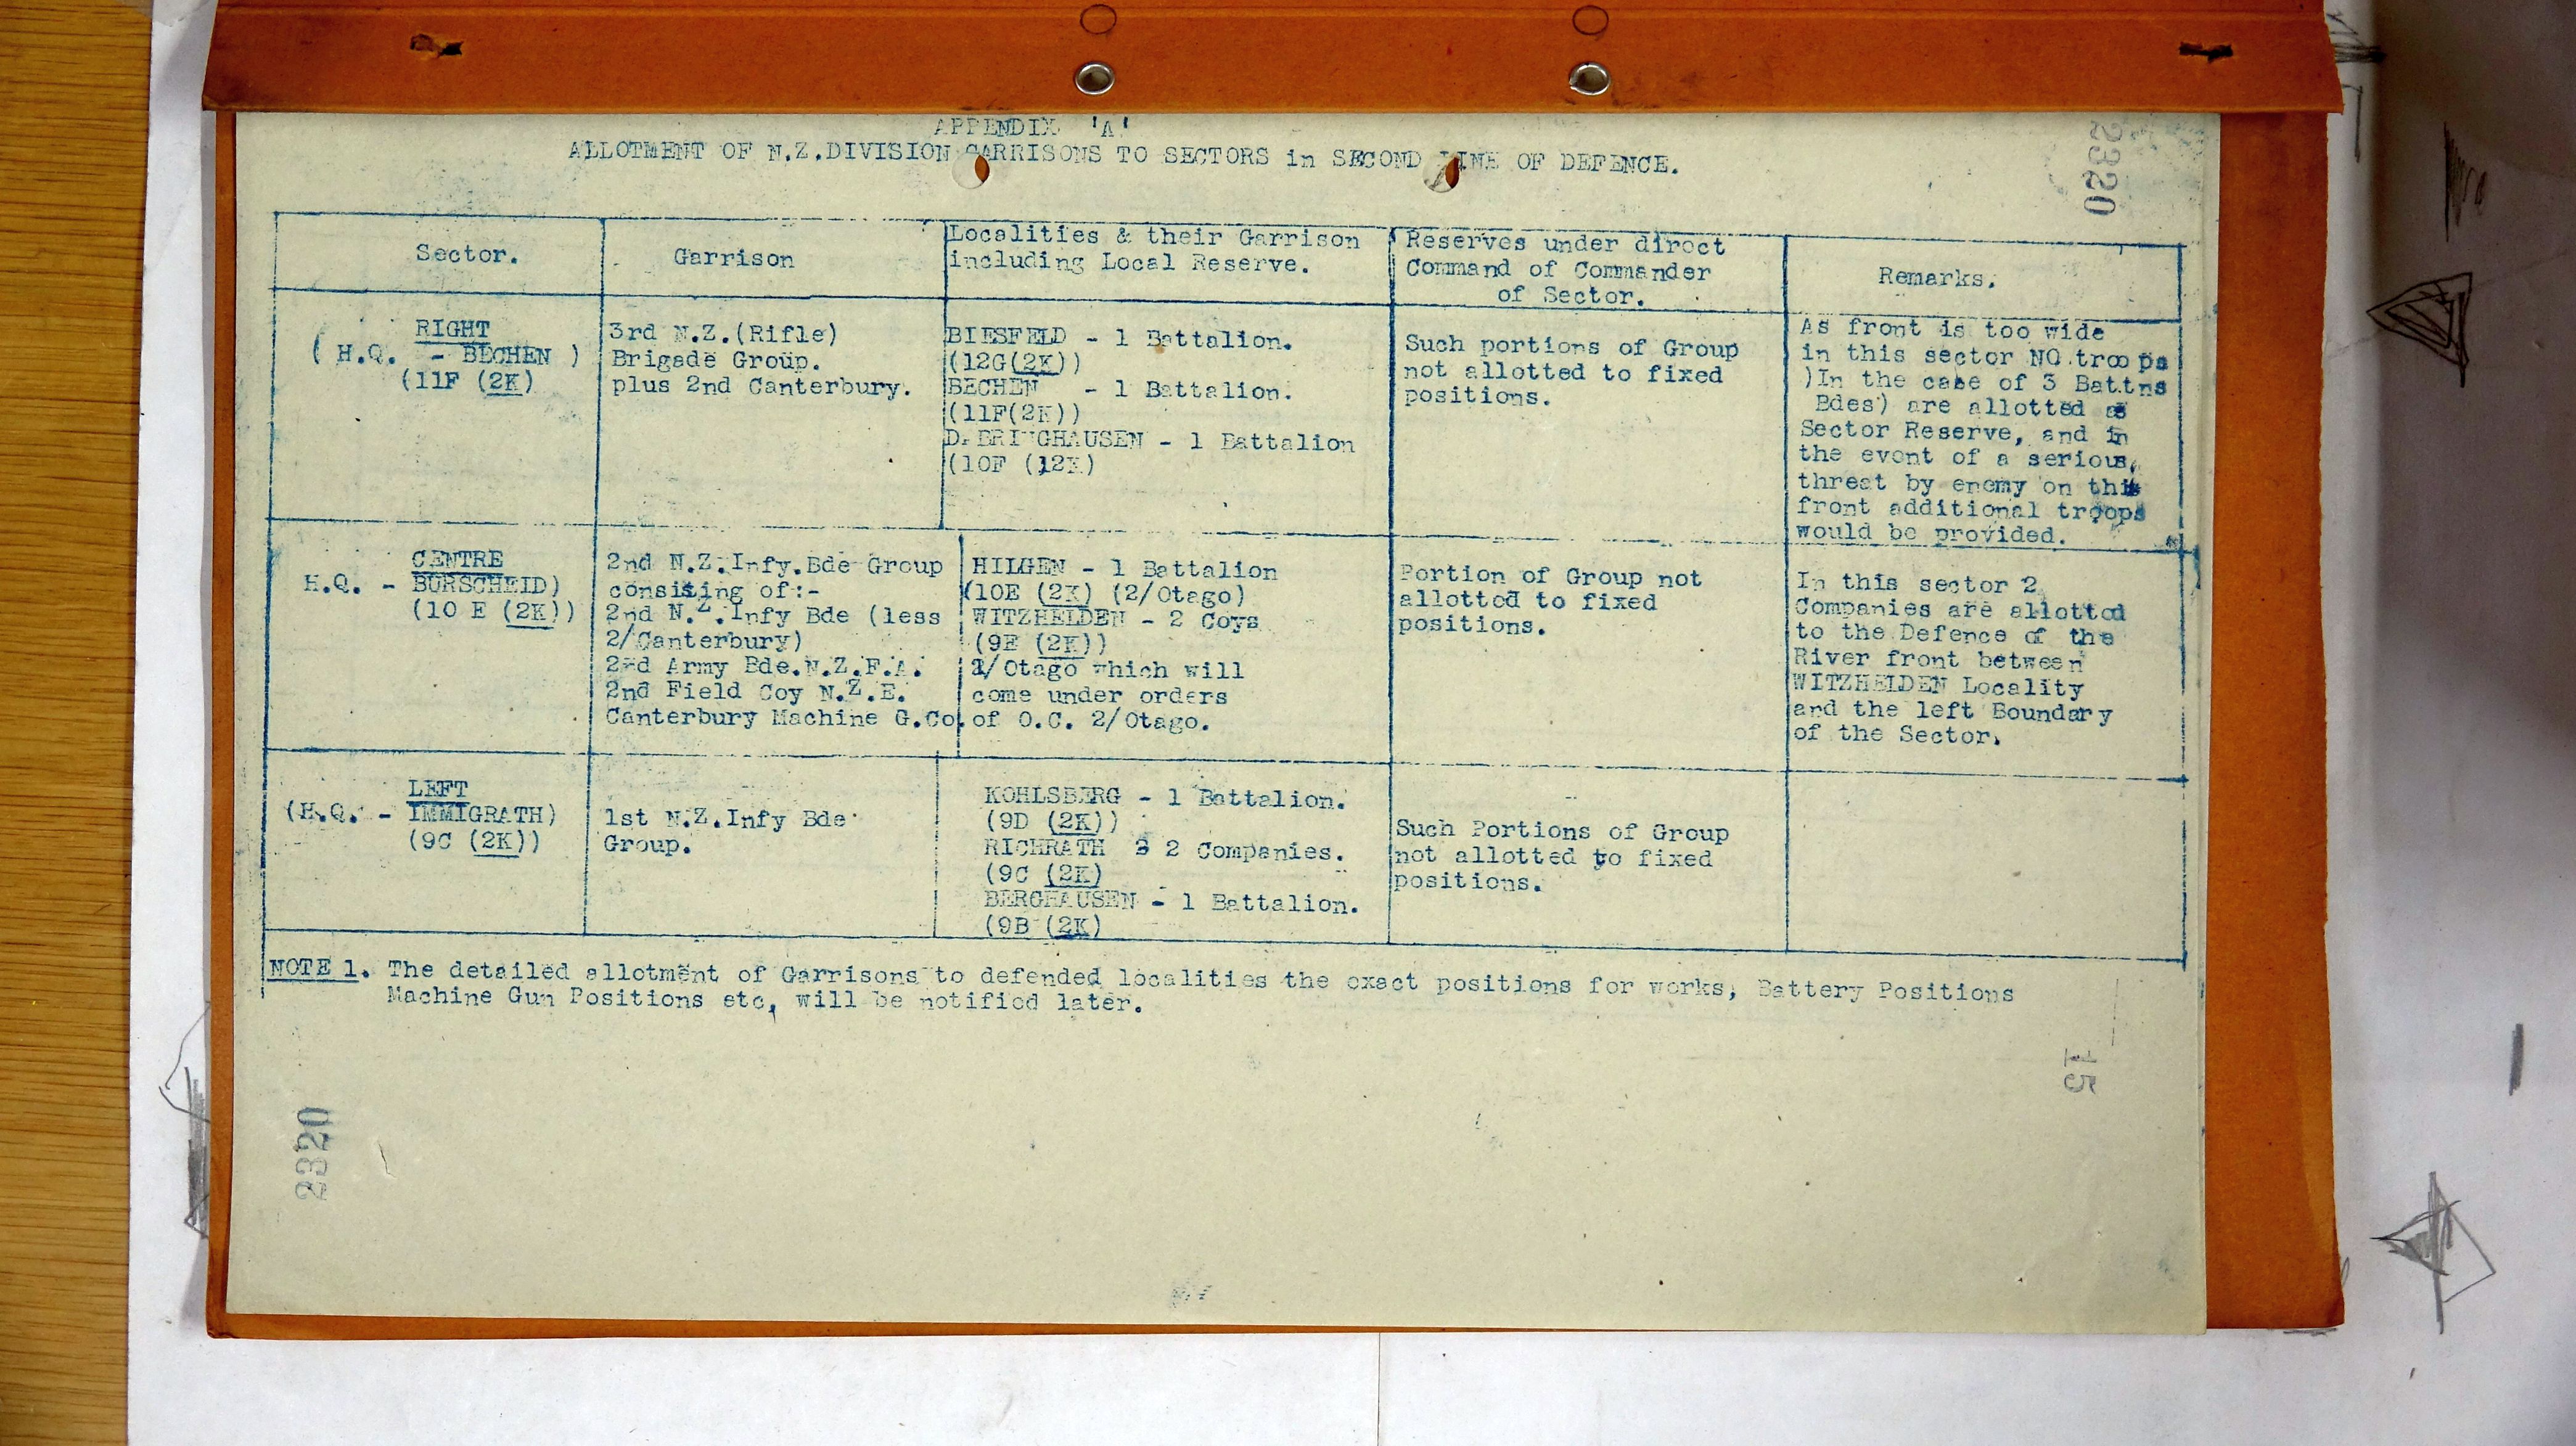 APPENDIX 'A'
ALLOTMENT OF N.Z.DIVISION GARRISONS TO SECTORS in SECOND LINE OF DEFENCE.
2320
Sector.
Garrison
Localities & their Garrison
including Local Reserve.
Reserves under direct
Command of Commander
of Sector.
Remarks.
RIGHT
( H.Q. - BECHEN )
(11F (2K)
3rd N.Z.(Rifle)
Brigade Group.
plus 2nd Canterbury.
BIESFELD - 1 Battalion.
(12G(2K))
BECHEN - 1 Battalion.
(11F(2K))
DABRINGHAUSEN - 1 Battalion
(10F (12K)
Such portions of Group
not allotted to fixed
positions.
As front is too wide
in this sector NO troops
)In the case of 3 Battns
Bdes) are allotted as
Sector Reserve, and in
the event of a serious
threat by enemy on this
front additional troops
would be provided.
CENTRE
H.Q. - BURSCHEID)
(10 E (2K))
2nd N.Z.Infy.Bde Group
consisting of:-
2nd N.Z.Infy Bde (less
2/Canterbury)
2nd Army Bde.N.Z.F.A.
2nd Field Coy N.Z.E.
Canterbury Machine G.Co.
HILGEN - 1 Battalion
(10E (2K) (2/Otago)
WITZHELDEN - 2 Coys
(9E (2K))
1/Otago which will
come under orders
of O.C. 2/Otago.
Portion of Group not
allotted to fixed
positions.
In this sector 2
Companies are allotted
to the Defence of the
River front between
WITZHELDEN Locality
and the left Boundary
of the Sector.
LEFT
(H.Q. - IMMIGRATH)
(9C (2K))
1st N.Z.Infy Bde
Group.
KOHLSBERG - 1 Battalion.
(9D (2K))
RICHRATH 2 Companies.
(9C (2K)
BERGHAUSEN - 1 Battalion.
(9B (2K)
Such Portions of Group
not allotted to fixed
positions.
NOTE 1. The detailed allotment of Garrisons to defended localities the exact positions for works, Battery Positions
Machine Gun Positions etc, will be notified later.
15
2320